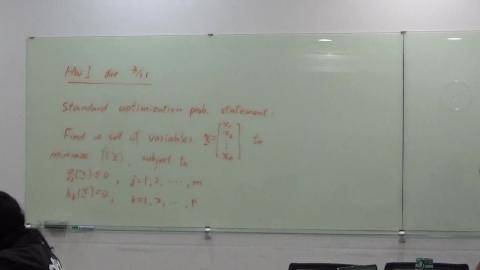 HW 1 due 9/11
Standard optimization prob. statement:
Find a set of variables x = [x₁ x₂ ⋮ xₙ] to
minimize f(x), subject to
gⱼ(x) ≤ 0, j=1, 2, ⋯, m
hₖ(x) = 0, k=1, 2, ⋯, p